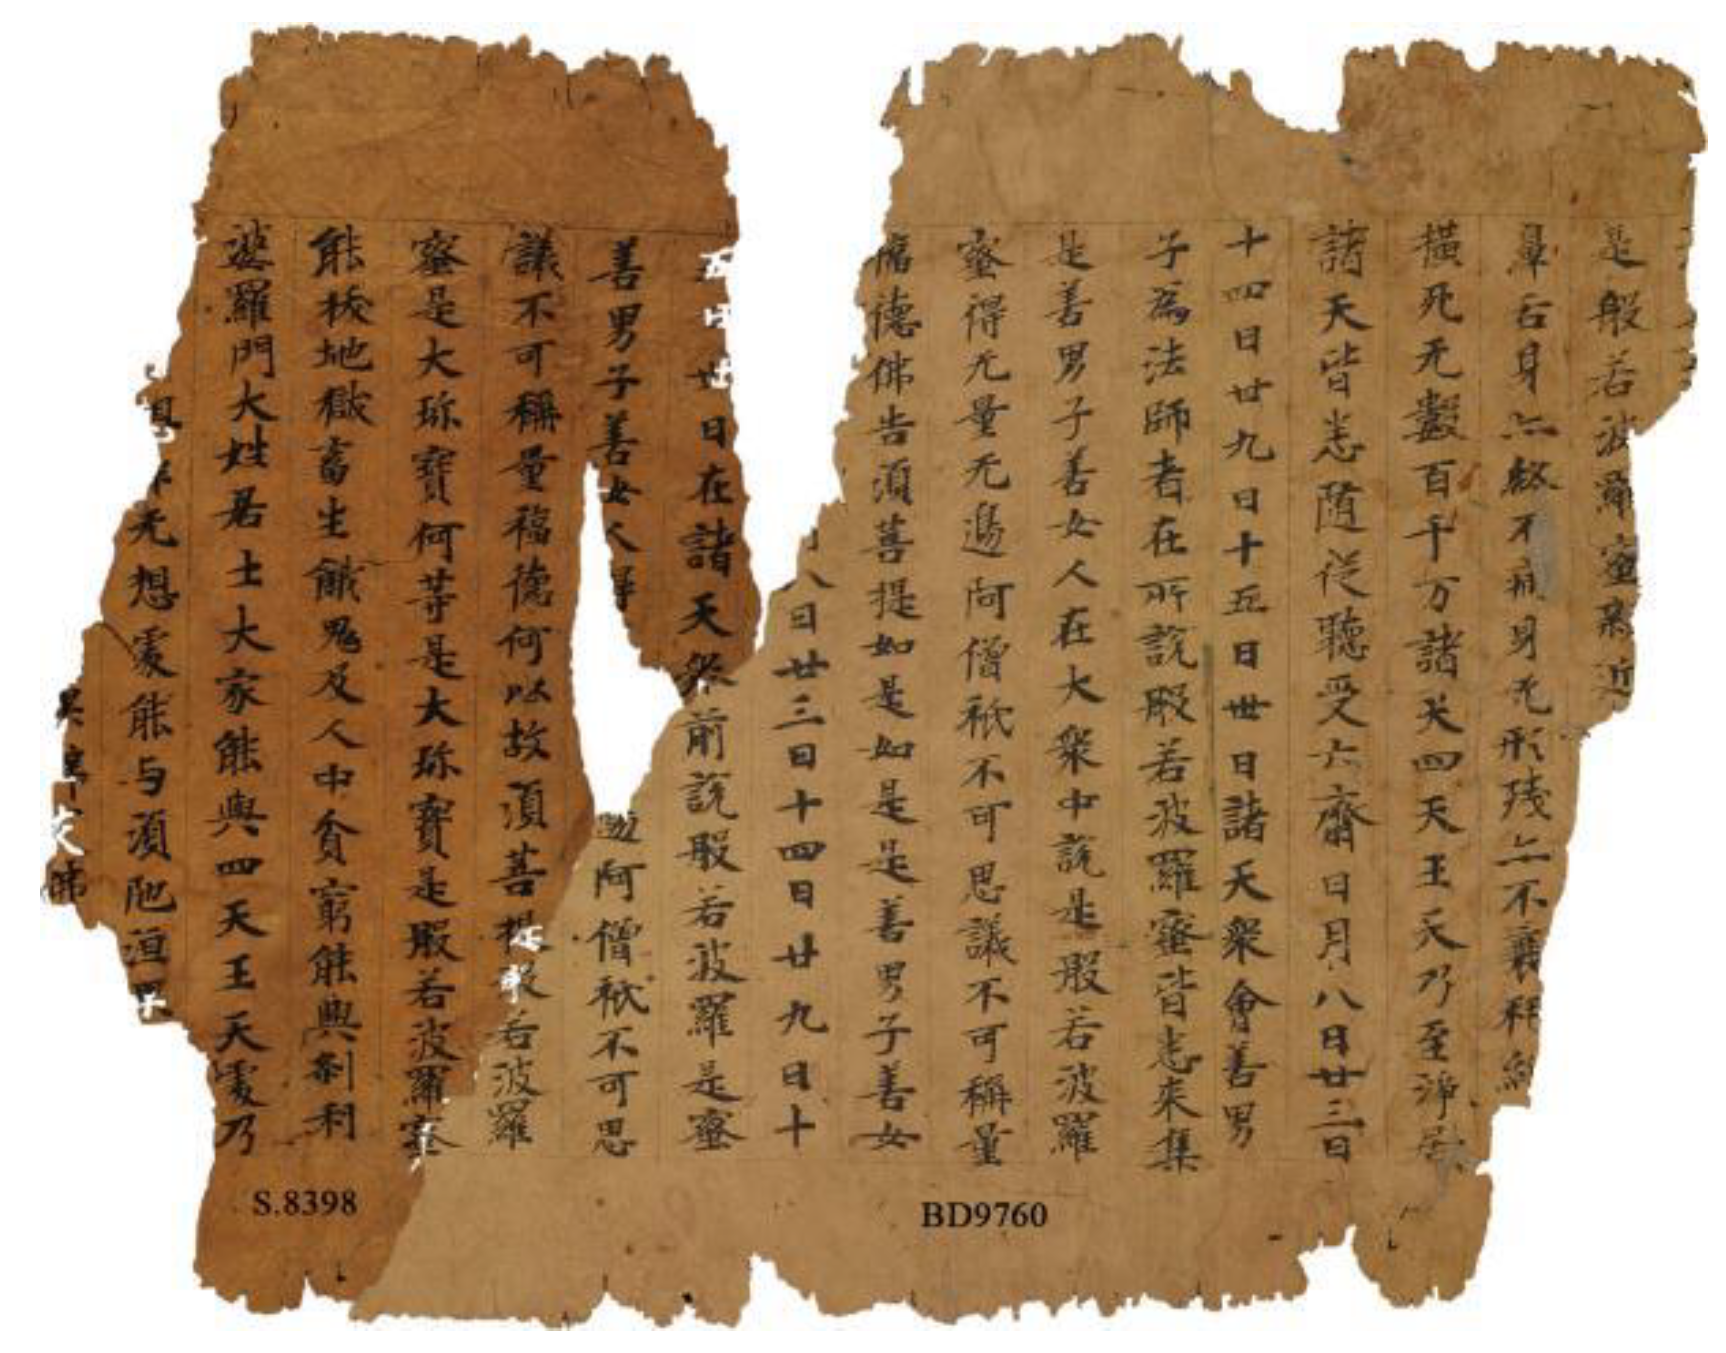 是般若波羅蜜親近
鼻舌身亦終不病身无形殘亦不衰耗終
橫死无數百千万諸天四天王天乃至淨居
諸天皆悉隨從聽受六齋日月八日廿三日
十四日廿九日十五日卅日諸天眾會善男
子為法師者在所說般若波羅蜜皆悉來集
是善男子善女人在大眾中說是般若波羅
蜜得无量无邊阿僧祇不可思議不可稱量
福德佛告須菩提如是如是是善男子善女
八日廿三日十四日廿九日十
五日卅日在諸天眾前說般若波羅是蜜
善男子善女人得邊阿僧祇不可思
議不可稱量福德何以故須菩提般若波羅
蜜是大珎寶何等是大珎寶是般若波羅蜜
能拔地獄畜生餓鬼及人中貧窮能與剎利
婆羅門大姓居士大家能與四天王天處乃
无想處能与須陁洹果
佛
S.8398
BD9760